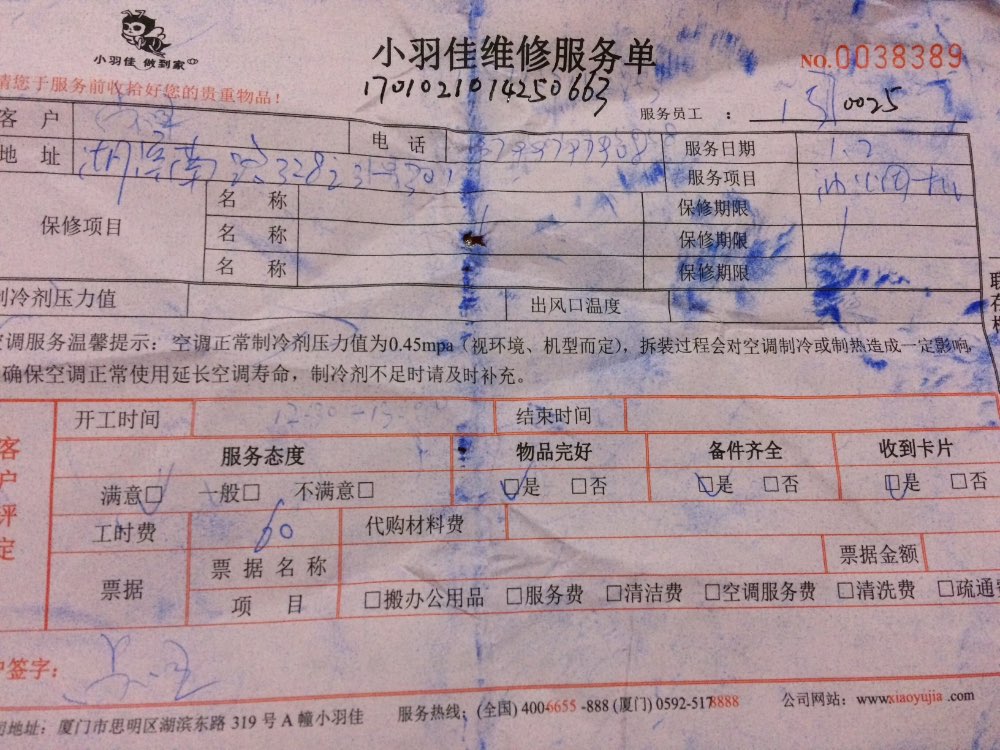 小羽佳 做到家
小羽佳维修服务单
NO.0038389
请您于服务前收拾好您的贵重物品!
1701021014250663
服务员工 : 0025
客 户 电 话 服务日期 1.2
地 址 湖滨南路 服务项目
保修项目 名 称 保修期限
名 称 保修期限
名 称 保修期限
制冷剂压力值 出风口温度
空调服务温馨提示:空调正常制冷剂压力值为0.45mpa(视环境、机型而定),拆装过程会对空调制冷或制热造成一定影响,
确保空调正常使用延长空调寿命,制冷剂不足时请及时补充。
客户评定
开工时间 结束时间
服务态度 物品完好 备件齐全 收到卡片
满意□ 一般□ 不满意□ □是 □否 □是 □否 □是 □否
工时费 60 代购材料费
票据 票据名称 票据金额
项 目 □搬办公用品 □服务费 □清洁费 □空调服务费 □清洗费 □疏通费
户签字:
地址: 厦门市思明区湖滨东路 319 号 A 幢小羽佳 服务热线:(全国) 4006655 -888 (厦门) 0592-5178888 公司网站: www.xiaoyujia .com